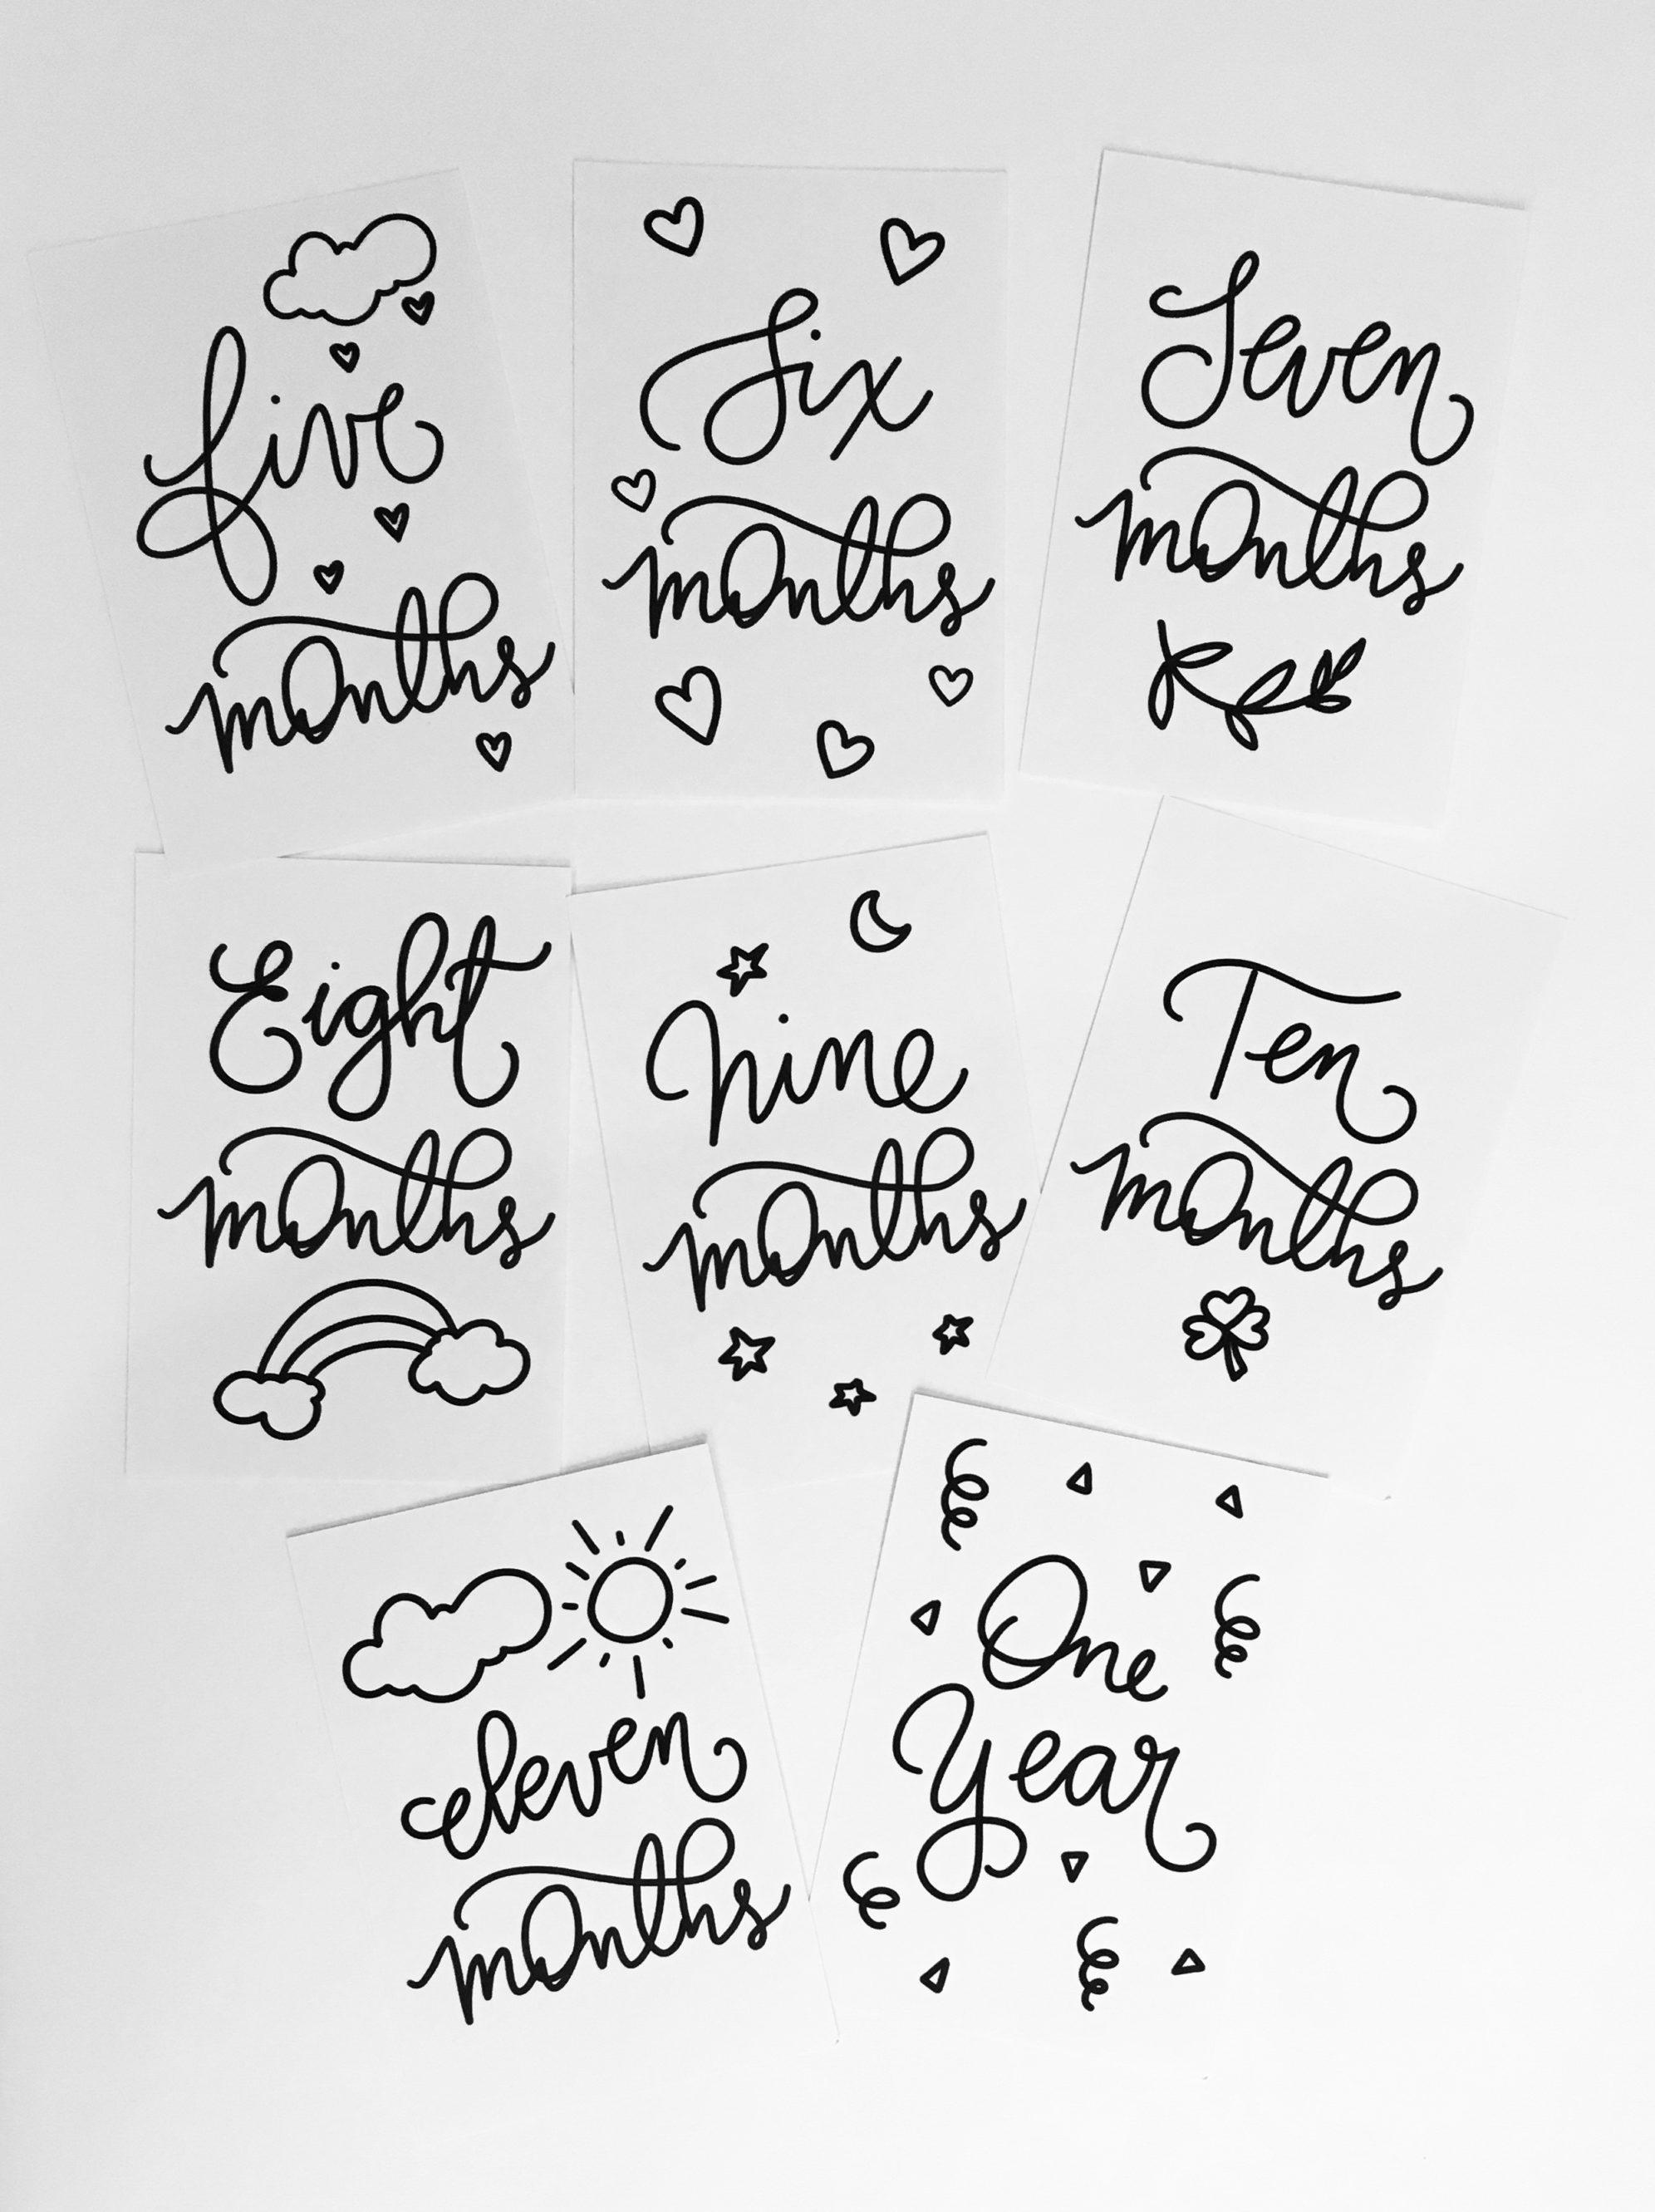 five
months
Six
months
Seven
months
Eight
months
nine
months
Ten
months
eleven
months
One
Year